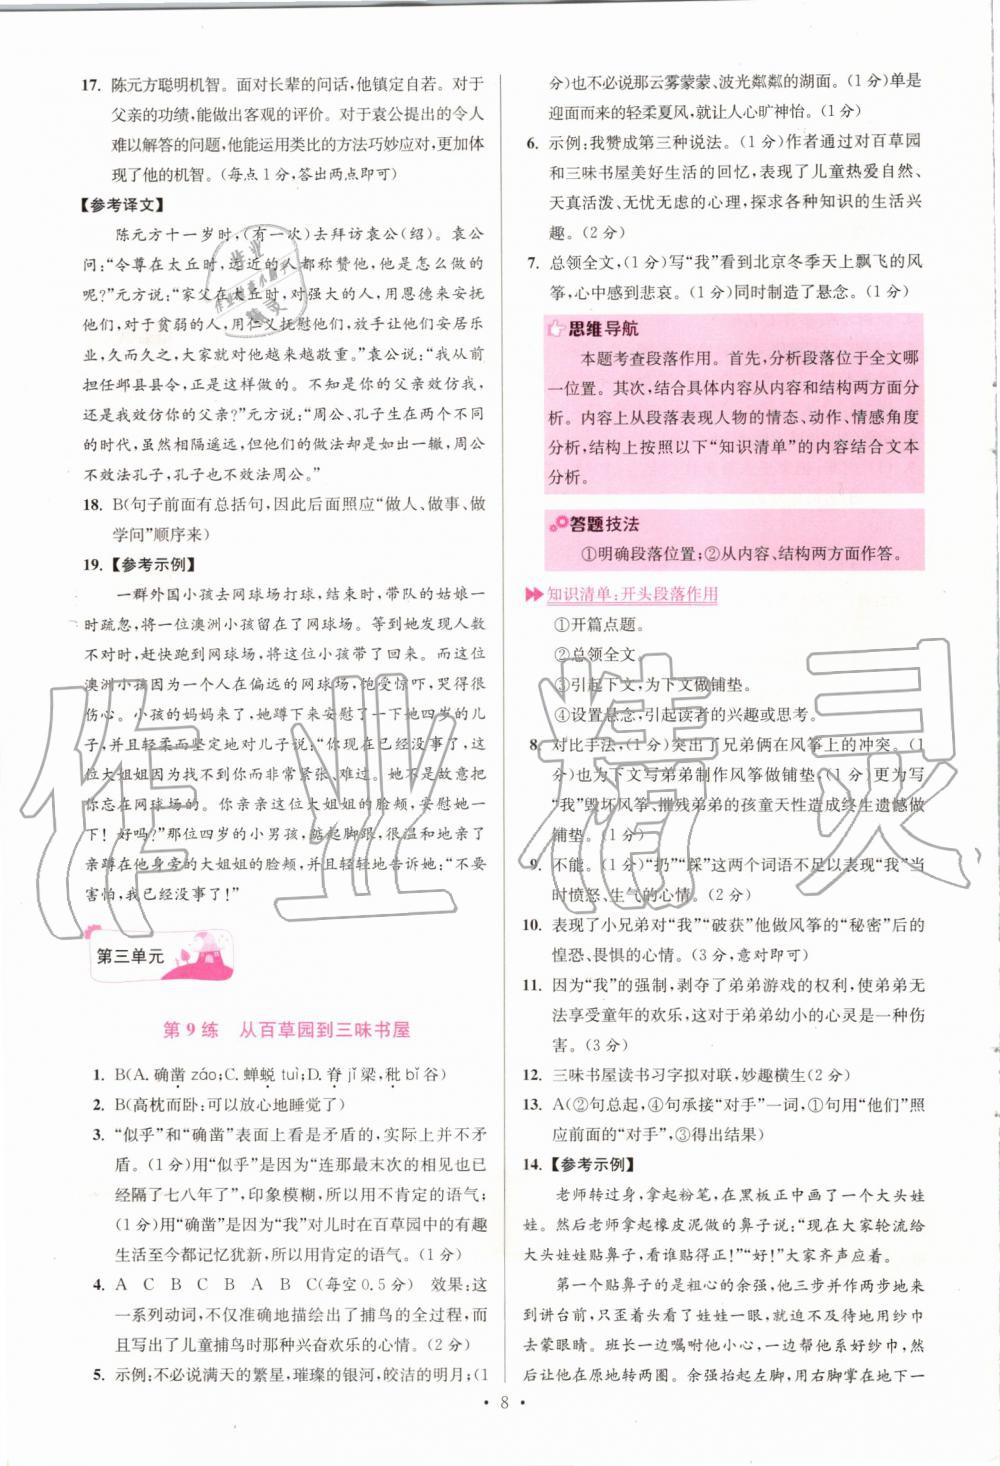 17. 陈元方聪明机智。面对长辈的问话,他镇定自若。对于
父亲的功绩,能做出客观的评价。对于袁公提出的令人
难以解答的问题,他能运用类比的方法巧妙应对,更体
现了他的机智。(每点1分,答出两点即可)
【参考译文】
陈元方十一岁时,(有一次)去拜访袁公(绍)。袁公
问:“令尊在太丘时,远近的人都称赞他,他是怎么做的
呢?”元方说:“家父在太丘时,对强大的人,用恩德来安抚
他们,对于贫弱的人,用仁义抚慰他们,放手让他们安居乐
业,久而久之,大家就对他越来越敬重。”袁公说:“我从前
担任邺县县令,正是这样做的。不知是你的父亲效仿我,
还是我效仿你的父亲?”元方说:“周公、孔子生在两个不同
的时代,虽然相隔遥远,但他们的做法却是如出一辙,周公
不效法孔子,孔子也不效法周公。”
18. B(句子前面有总括句,因此后面照应“做人、做事、做
学问”顺序来)
19. 【参考示例】
一群外国小孩去网球场打球,结束时,带队的姑娘一
时疏忽,将一位澳洲小孩留在了网球场。等到她发现人数
不对时,赶快跑到网球场,将这位小孩带了回来。而这位
澳洲小孩因为一个人在偏远的网球场,饱受惊吓,哭得很
伤心。小孩的妈妈来了,她蹲下来安慰了一下她四岁的儿
子,并且轻柔而坚定地对儿子说:“你现在已经没事了,这
位大姐姐因为找不到你而非常紧张、难过。她不是故意把
你忘在网球场的。你亲亲这位大姐姐的脸颊,安慰她一
下!好吗?”那位四岁的小男孩,踮起脚跟,很温和地亲了
亲蹲在他身旁的大姐姐的脸颊,并且轻轻地告诉她:“不要
害怕,我已经没事了!”
第三单元
第9练 从百草园到三味书屋
1. B(A.确凿 záo;C.蝉蜕 tuì;D.脊 jǐ 梁,秕 bǐ 谷)
2. B(高枕而卧:可以放心地睡觉了)
3. “似乎”和“确凿”表面上看是矛盾的,实际上并不矛
盾。(1分)用“似乎”是因为“连那最末次的相见也已
经隔了七八年了”,印象模糊,所以用不肯定的语气;
(1分)用“确凿”是因为“我”对儿时在百草园中的有趣
生活至今都记忆犹新,所以用肯定的语气。(1分)
4. A C B C B A B C(每空0.5分) 效果:这
一系列动词,不仅准确地描绘出了捕鸟的全过程,而
且写出了儿童捕鸟时那种兴奋欢乐的心情。(2分)
5. 示例:不必说满天的繁星,璀璨的银河,皎洁的明月;(1
分)也不必说那云雾蒙蒙、波光粼粼的湖面。(1分)单是
迎面而来的轻柔夏风,就让人心旷神怡。(1分)
6. 示例:我赞成第三种说法。(1分)作者通过对百草园
和三味书屋美好生活的回忆,表现了儿童热爱自然、
天真活泼、无忧无虑的心理,探求各种知识的生活兴
趣。(2分)
7. 总领全文,(1分)写“我”看到北京冬季天上飘飞的风
筝,心中感到悲哀。(1分)同时制造了悬念。(1分)
思维导航
本题考查段落作用。首先,分析段落位于全文哪
一位置。其次,结合具体内容从内容和结构两方面分
析。内容上从段落表现人物的情态、动作、情感角度
分析,结构上按照以下“知识清单”的内容结合文本
分析。
答题技法
①明确段落位置;②从内容、结构两方面作答。
知识清单:开头段落作用
①开篇点题。
②总领全文。
③引起下文,为下文做铺垫。
④设置悬念,引起读者的兴趣或思考。
8. 对比手法,(1分)突出了兄弟俩在风筝上的冲突。(1
分)也为下文写弟弟制作风筝做铺垫,(1分)更为写
“我”毁坏风筝,摧残弟弟的孩童天性造成终生遗憾做
铺垫。(1分)
9. 不能。(1分)“扔”“踩”这两个词语不足以表现“我”当
时愤怒、生气的心情。(2分)
10. 表现了小兄弟对“我”“破获”他做风筝的“秘密”后的
惶恐、畏惧的心情。(3分,意对即可)
11. 因为“我”的强制,剥夺了弟弟游戏的权利,使弟弟无
法享受童年的欢乐,这对于弟弟幼小的心灵是一种伤
害。(3分)
12. 三味书屋读书习字拟对联,妙趣横生(2分)
13. A(②句总起,④句承接“对手”一词,①句用“他们”照
应前面的“对手”,③得出结果)
14. 【参考示例】
老师转过身,拿起粉笔,在黑板正中画了一个大头娃
娃。然后老师拿起橡皮泥做的鼻子说:“现在大家轮流给
大头娃娃贴鼻子,看谁贴得正!”“好!”大家齐声应着。
第一个贴鼻子的是粗心的余强,他三步并作两步地来
到讲台前,只歪着头看了娃娃一眼,就迫不及待地用纱巾
去蒙眼睛。班长一边嘱咐他小心,一边帮他系好纱巾,然
后让他在原地转两圈。余强抬起左脚,用右脚掌在地下一
· 8 ·
作业精灵